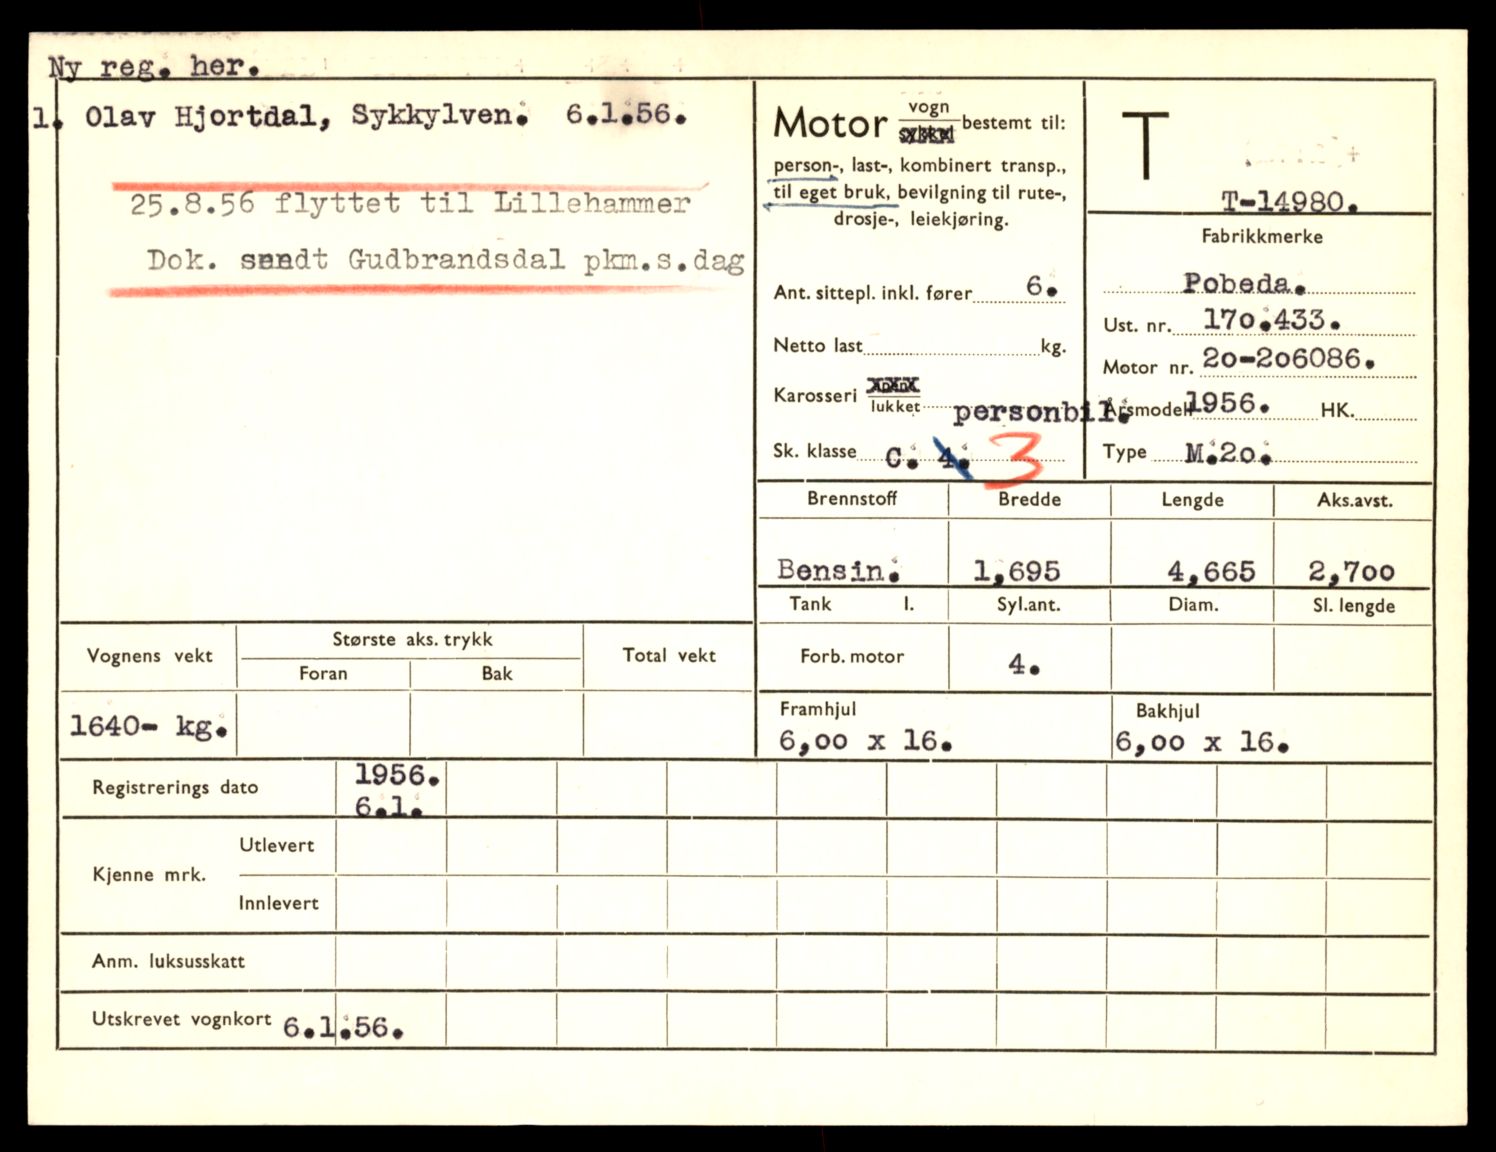 Ny reg. her.
1. Olav Hjortdal, Sykkylven. 6.1.56.
25.8.56 flyttet til Lillehammer
Dok. sendt Gudbrandsdal pkm.s.dag
Motor vogn bestemt til:
person-, last-, kombinert transp.,
til eget bruk, bevilgning til rute-,
drosje-, leiekjøring.
Ant. sittepl. inkl. fører 6.
Netto last kg.
Karosseri
lukket personbil.
Sk. klasse C. 4. 3
T
T-14980.
Fabrikkmerke
Pobeda.
Ust. nr. 170.433.
Motor nr. 2o-2o6086.
Årsmodell 1956. HK.
Type M.2o.
Brennstoff Bredde Lengde Aks.avst.
Bensin. 1,695 4,665 2,7oo
Tank l. Syl.ant. Diam. Sl. lengde
Forb. motor 4.
Vognens vekt Største aks. trykk Total vekt
Foran Bak
1640- kg.
Framhjul Bakhjul
6,oo x 16. 6,oo x 16.
Registrerings dato 1956.
6.1.
Kjenne mrk. Utlevert
Innlevert
Anm. luksusskatt
Utskrevet vognkort 6.1.56.